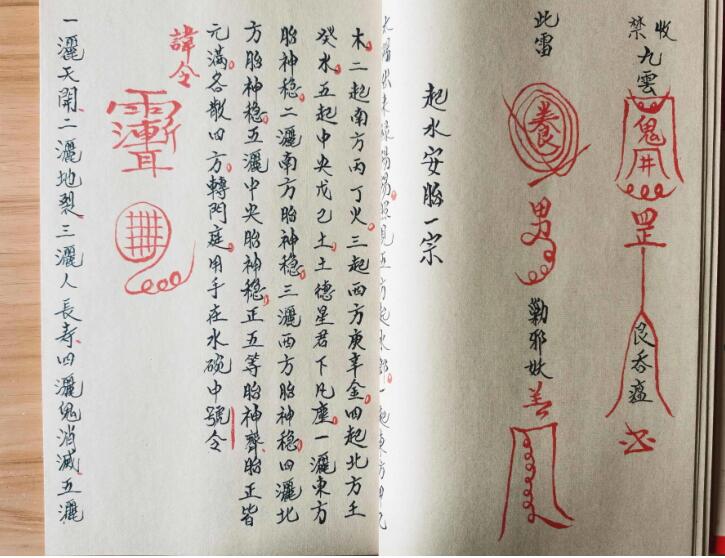 收
禁
九雲
鬼
井
罡
良吞瘟
此雷
養
男
勒邪妖善
起水安胎一宗
木二起南方丙丁火三起西方庚辛金四起北方壬
癸水五起中央戊己土土德星君下凡塵一灑東方
胎神稳二灑南方胎神稳三灑西方胎神稳四灑北
方胎神稳五灑中央胎神稳正五等胎神齊胎正皆
元滿各散四方轉門庭用手在水碗中號令
諱令
一灑天開二灑地裂三灑人長寿四灑鬼消滅五灑